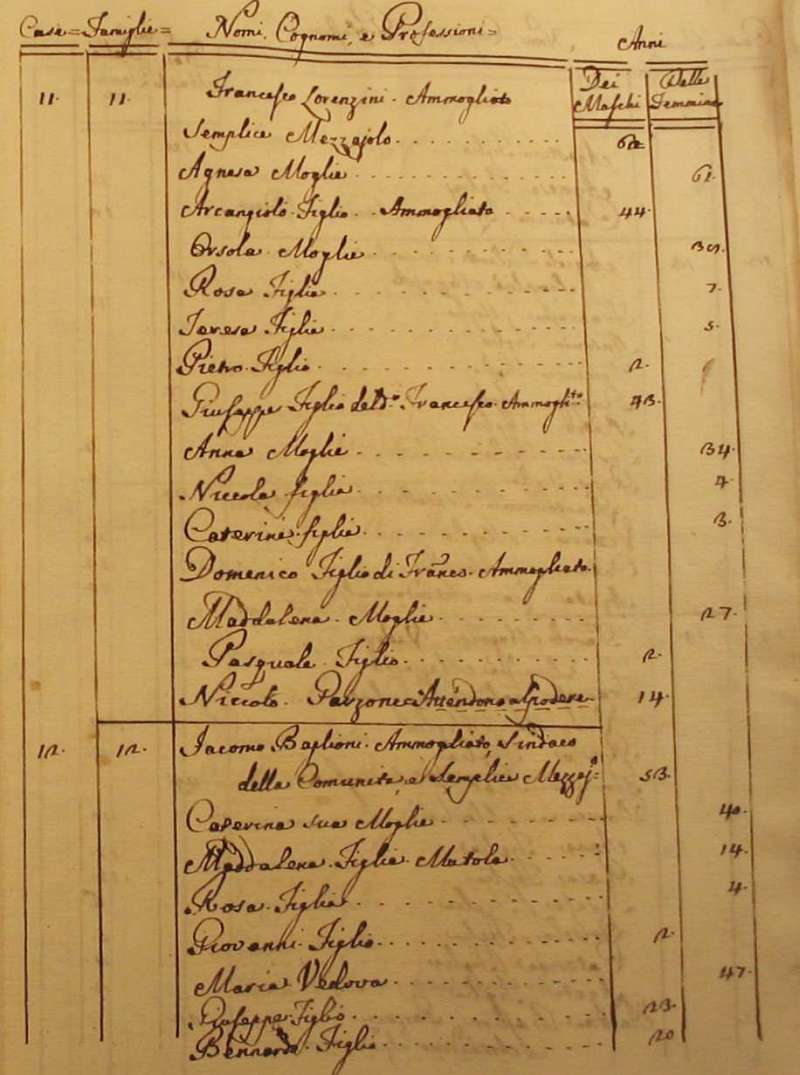 Case = Famiglie = Nomi, Cognomi, e Professioni = Anni
Dei Maschi Delle Femmine
11. 11. Francesco Lorenzini. Ammogliato
Semplice Mezzajolo
Agnesa Moglie 61.
Arcangiolo Figlio. Ammogliato 44.
Orsola. Moglie
Rosa Figlia 7.
Teresa Figlia 5.
Pietro Figlio 2.
Giuseppe Figlio del Do. Francesco. Ammoglto. 43.
Anna Moglie 34.
Niccola figlia 4.
Caterina figlia 3.
Domenico Figlio di Frances. Ammogliato.
Maddalena. Moglie 27.
Pasquale Figlio 2.
Niccolo. Garzone Attendono al Podere 14.
12. 12. Iacomo Baglioni. Ammogliato, Sindaco
della Comunita, e Semplice Mezzajo. 53.
Caterina sua Moglie 40.
Maddalena. Figlia Matola 14.
Rosa. Figlia 4.
Giovanni. Figlio 2.
Maria Vedova 47.
Giuseppe Figlio 23.
Bernardo. Figlio 20